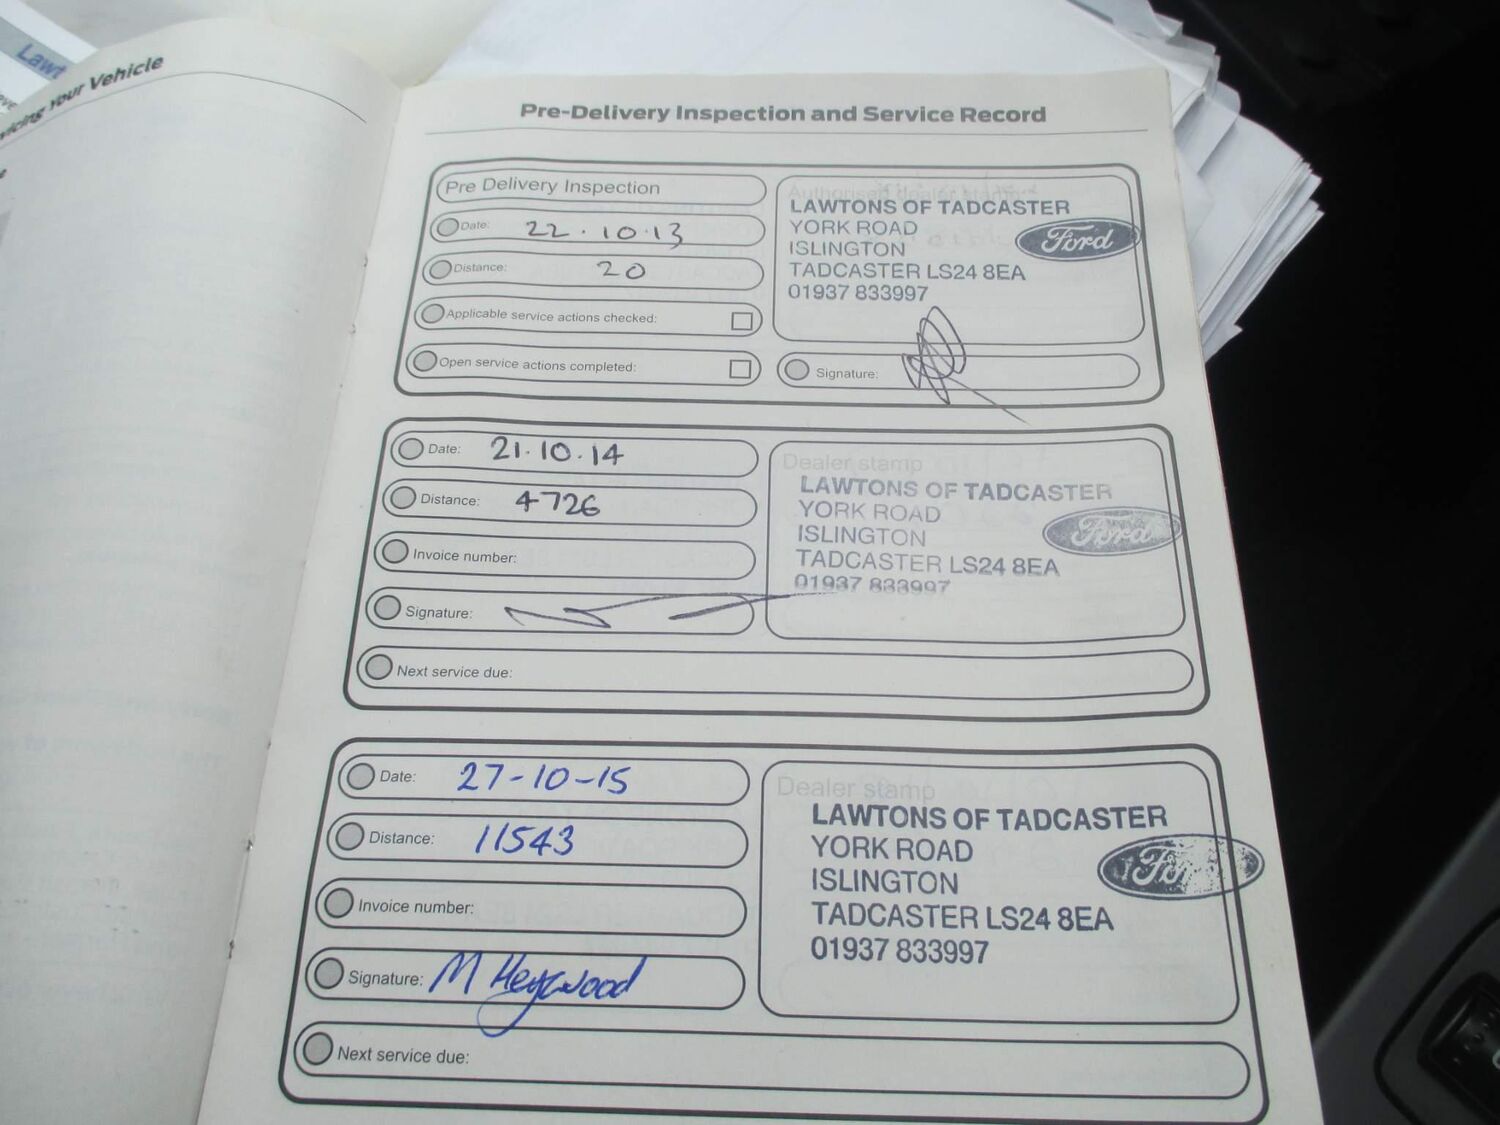 Lawt
Your Vehicle
Pre-Delivery Inspection and Service Record
Pre Delivery Inspection
Date: 22.10.13
Distance: 20
Applicable service actions checked:
Open service actions completed:
Authorised dealer stamp
LAWTONS OF TADCASTER
YORK ROAD
ISLINGTON
TADCASTER LS24 8EA
01937 833997
Ford
Signature:
Date: 21.10.14
Distance: 4726
Invoice number:
Signature:
Next service due:
Dealer stamp
LAWTONS OF TADCASTER
YORK ROAD
ISLINGTON
TADCASTER LS24 8EA
01937 833997
Ford
Date: 27-10-15
Distance: 11543
Invoice number:
Signature: M Heywood
Next service due:
Dealer stamp
LAWTONS OF TADCASTER
YORK ROAD
ISLINGTON
TADCASTER LS24 8EA
01937 833997
Ford